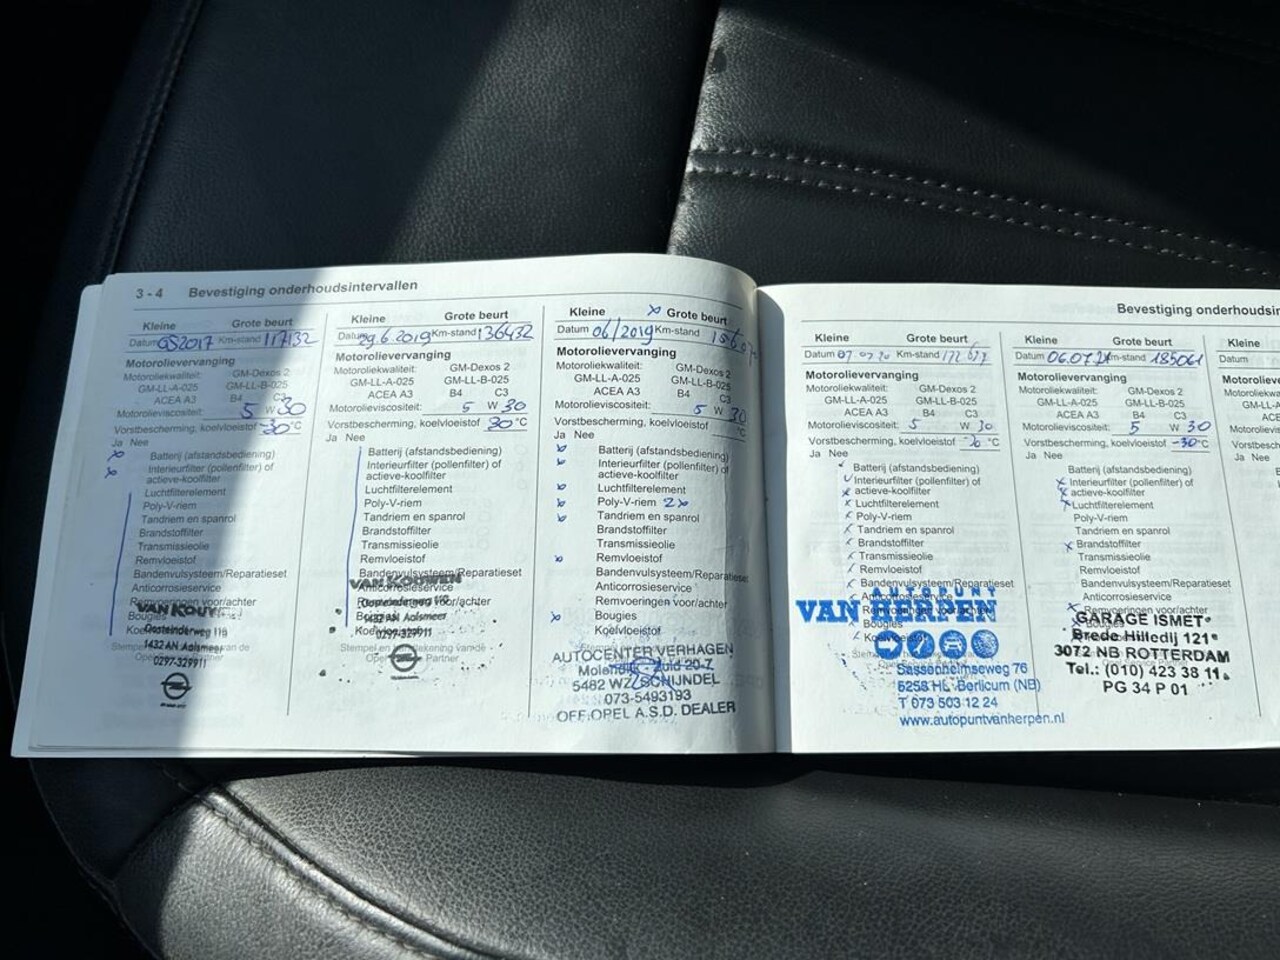 3 - 4 Bevestiging onderhoudsintervallen
Kleine Grote beurt
Datum 052017 Km-stand 117132
Motorolievervanging
Motoroliekwaliteit: GM-Dexos 2
GM-LL-A-025 GM-LL-B-025
ACEA A3 B4 C3
Motorolieviscositeit: 5 W 30
Vorstbescherming, koelvloeistof -30 °C
Ja Nee
Batterij (afstandsbediening)
Interieurfilter (pollenfilter) of
actieve-koolfilter
Luchtfilterelement
Poly-V-riem
Tandriem en spanrol
Brandstoffilter
Transmissieolie
Remvloeistof
Bandenvulsysteem/Reparatieset
Anticorrosieservice
Remvoeringen voor/achter
Bougies
VAN KOUW
Oosteinderweg 110
1432 AN Aalsmeer
0297-329911
Kleine Grote beurt
Datum 29.6.2019 Km-stand 136432
Motorolievervanging
Motoroliekwaliteit: GM-Dexos 2
GM-LL-A-025 GM-LL-B-025
ACEA A3 B4 C3
Motorolieviscositeit: 5 W 30
Vorstbescherming, koelvloeistof 30 °C
Ja Nee
Batterij (afstandsbediening)
Interieurfilter (pollenfilter) of
actieve-koolfilter
Luchtfilterelement
Poly-V-riem
Tandriem en spanrol
Brandstoffilter
Transmissieolie
Remvloeistof
Bandenvulsysteem/Reparatieset
Anticorrosieservice
VAN KOUWEN
Oosteinderweg 110
1432 AN Aalsmeer
0297-329911
Kleine x Grote beurt
Datum 06/2019 Km-stand
Motorolievervanging
Motoroliekwaliteit: GM-Dexos 2
GM-LL-A-025 GM-LL-B-025
ACEA A3 B4 C3
Motorolieviscositeit: 5 W 30
Vorstbescherming, koelvloeistof °C
Ja Nee
Batterij (afstandsbediening)
Interieurfilter (pollenfilter) of
actieve-koolfilter
Luchtfilterelement
Poly-V-riem 2x
Tandriem en spanrol
Brandstoffilter
Transmissieolie
Remvloeistof
Bandenvulsysteem/Reparatieset
Anticorrosieservice
Remvoeringen voor/achter
Bougies
Koelvloeistof
AUTOCENTER VERHAGEN
5482 WZ SCHIJNDEL
073-5493193
OFF. OPEL A.S.D. DEALER
Bevestiging onderhoudsin
Kleine Grote beurt
Datum Km-stand
Motorolievervanging
Motoroliekwaliteit: GM-Dexos 2
GM-LL-A-025 GM-LL-B-025
ACEA A3 B4 C3
Motorolieviscositeit: 5 W 30
Vorstbescherming, koelvloeistof °C
Ja Nee
Batterij (afstandsbediening)
Interieurfilter (pollenfilter) of
actieve-koolfilter
Luchtfilterelement
Poly-V-riem
Tandriem en spanrol
Brandstoffilter
Transmissieolie
Remvloeistof
Bandenvulsysteem/Reparatieset
Anticorrosieservice
AUTOPUNT
VAN HERPEN
Bougies
Sassenheimseweg 76
5258 HL Berlicum (NB)
T 073 503 12 24
www.autopuntvanherpen.nl
Kleine Grote beurt
Datum 06.07.21 Km-stand 185061
Motorolievervanging
Motoroliekwaliteit: GM-Dexos 2
GM-LL-A-025 GM-LL-B-025
ACEA A3 B4 C3
Motorolieviscositeit: 5 W 30
Vorstbescherming, koelvloeistof -30 °C
Ja Nee
Batterij (afstandsbediening)
Interieurfilter (pollenfilter) of
actieve-koolfilter
Luchtfilterelement
Poly-V-riem
Tandriem en spanrol
Brandstoffilter
Transmissieolie
Remvloeistof
Bandenvulsysteem/Reparatieset
Anticorrosieservice
Remvoeringen voor/achter
GARAGE ISMET
Brede Hilledij 121
3072 NB ROTTERDAM
Tel.: (010) 423 38 11
PG 34 P 01
Kleine
Datum
Motorolieve
Ja Nee